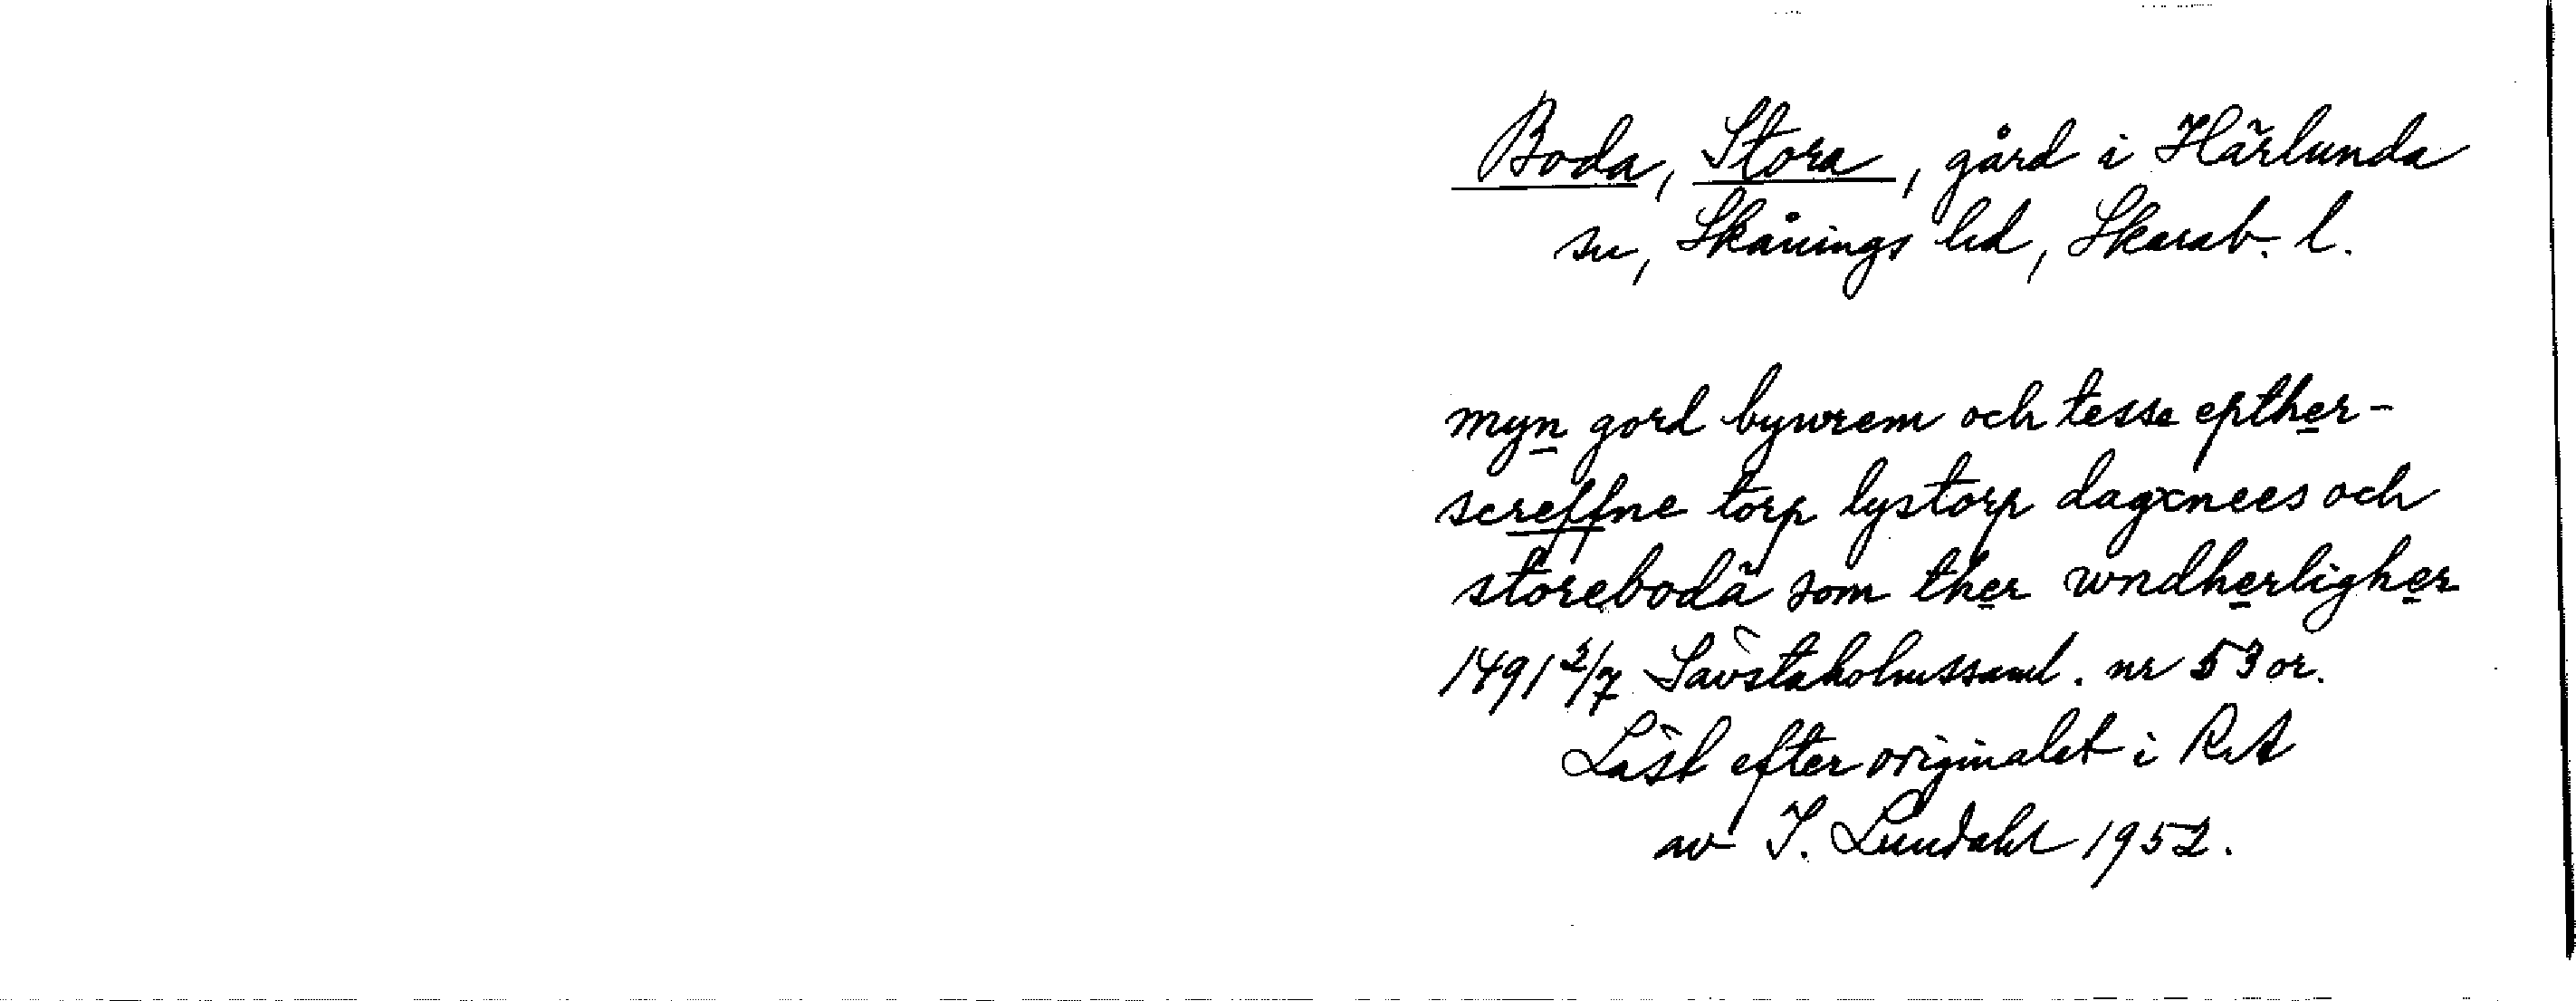 Boda, Stora, gård i Härlunda
sn, Skånings hd, Skarab. l.
myn gord bywrem och tesse epther-
screffne torp lystorp dagxnees och
storebodä som ther wndherligher
1491 2/7 Sävstaholmssaml. nr 53 or.
Läst efter originalet i RA
av I. Lundahl 1952.